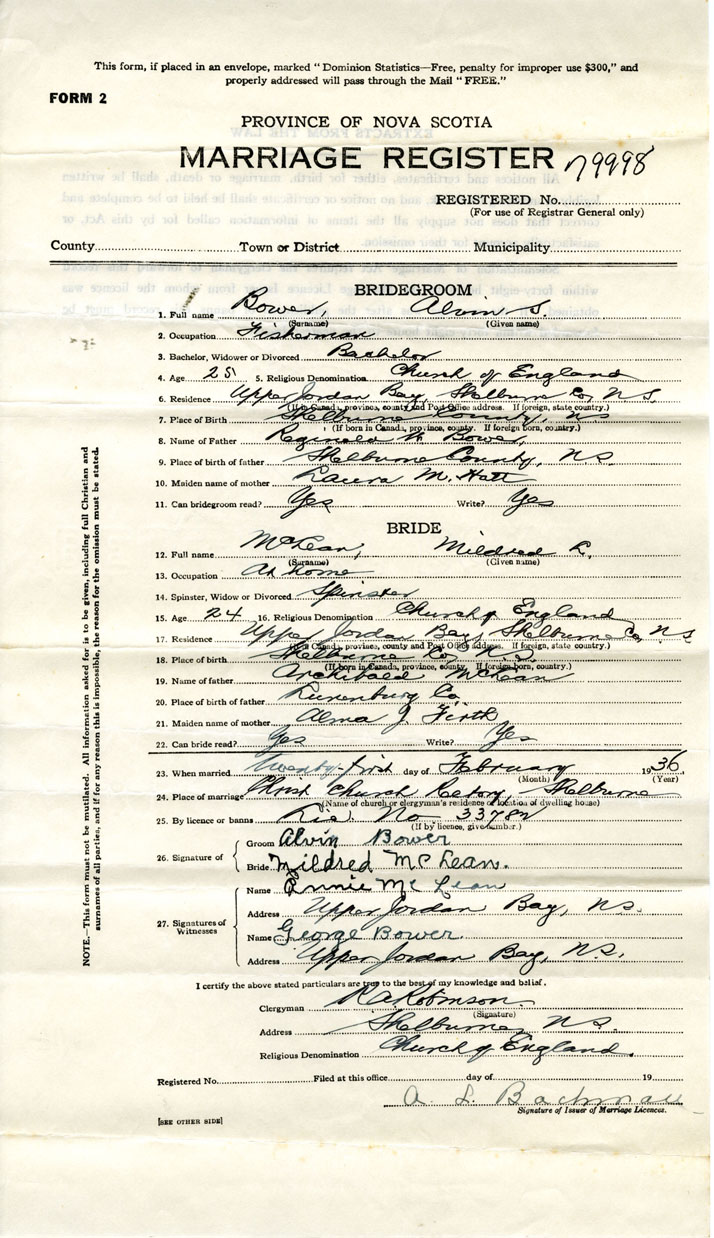 This form, if placed in an envelope, marked "Dominion Statistics—Free, penalty for improper use $300," and
properly addressed will pass through the Mail "FREE."
FORM 2
PROVINCE OF NOVA SCOTIA
MARRIAGE REGISTER 79998
REGISTERED No.
(For use of Registrar General only)
County Town or District Municipality
BRIDEGROOM
1. Full name Bower, Alvin S.
(Surname) (Given name)
2. Occupation Fisherman
3. Bachelor, Widower or Divorced Bachelor
4. Age 25 5. Religious Denomination Church of England
6. Residence Upper Jordan Bay, Shelburne Co, N S.
(If in Canada, province, county and Post Office address. If foreign, state country.)
7. Place of Birth Shelburne County, N S
(If born in Canada, province, county. If foreign born, country.)
8. Name of Father Reginald H. Bower,
9. Place of birth of father Shelburne County, N S.
10. Maiden name of mother Laura M. Hatt
11. Can bridegroom read? Yes Write? Yes
BRIDE
12. Full name McLean, Mildred L.
(Surname) (Given name)
13. Occupation At home
14. Spinster, Widow or Divorced Spinster
15. Age 24 16. Religious Denomination Church of England
17. Residence Upper Jordan Bay, Shelburne Co, N S
(If in Canada, province, county and Post Office address. If foreign, state country.)
18. Place of birth Shelburne Co, N.S.
(If born in Canada, province, county. If foreign born, country.)
19. Name of father Archibald McLean
20. Place of birth of father Lunenburg Co.
21. Maiden name of mother Alma J. Firth
22. Can bride read? Yes Write? Yes
23. When married twenty-first day of February 1936
(Month) (Year)
24. Place of marriage Christ Church Rectory, Shelburne
(Name of church or clergyman's residence or location of dwelling house)
25. By licence or banns Lic. No
(If by licence, give number.)
26. Signature of
Groom Alvin Bower
Bride Mildred McLean.
27. Signatures of Witnesses
Name Annie McLean
Address Upper Jordan Bay, N.S.
Name George Bower
Address Upper Jordan Bay, N.S.
I certify the above stated particulars are true to the best of my knowledge and belief.
Clergyman R A Robinson.
(Signature)
Address Shelburne, N S.
Religious Denomination Church of England.
Registered No. Filed at this office day of 19
A. L. Bachman
Signature of Issuer of Marriage Licences.
[SEE OTHER SIDE]
NOTE.—This form must not be mutilated. All information asked for is to be given, including full Christian and
surnames of all parties, and if for any reason this is impossible, the reason for the omission must be stated.